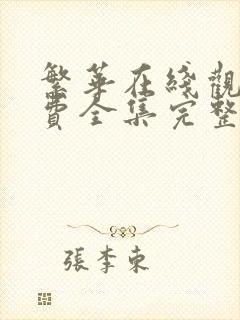 繁華在綫觀
費全集完整
張李東